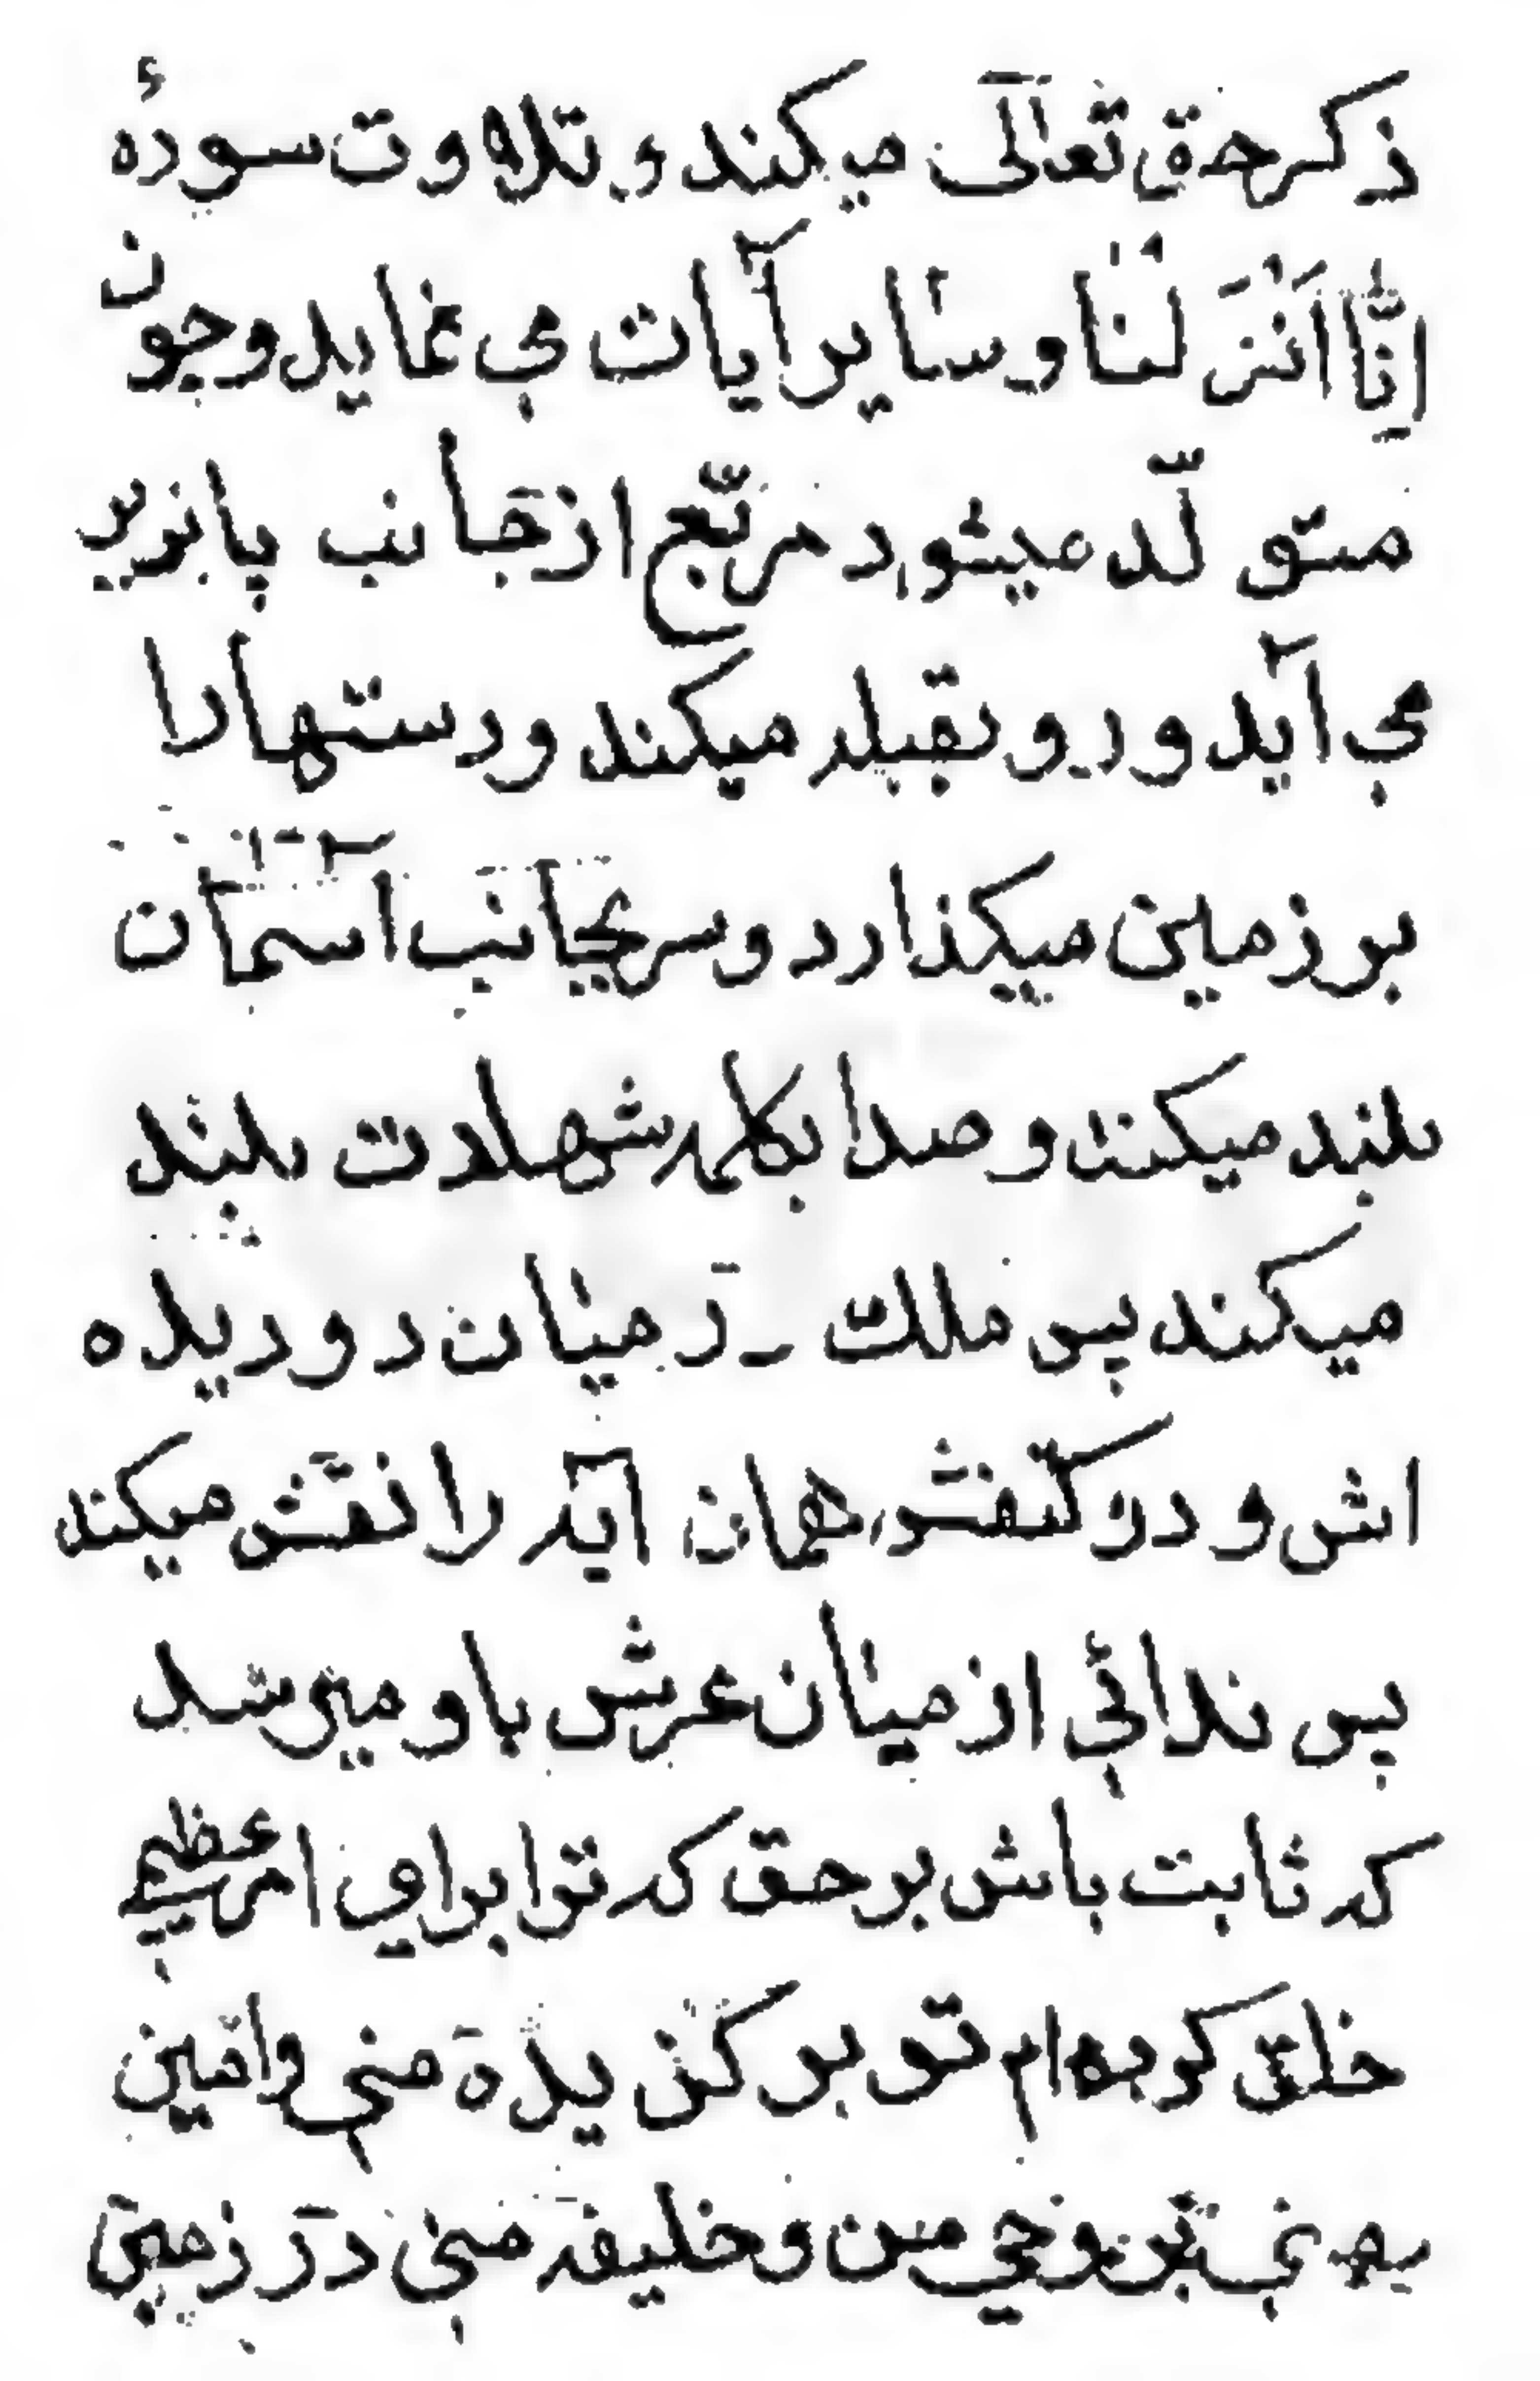 ذکر حق تعالی میکند و تلاوت سورهٔ
اِنّا اَنْزَلْنا و سایر آیات می نماید و چون
متولّد میشود مربّع از جانب پا بزیر
می آید و رو بقبله میکند و دستها را
بر زمین میکذارد و سر بجانب آسمان
بلند میکند و صدا بکلمه شهادت بلند
میکند پس ملک در میان دو دیده
اش و در کتفش همان آیه را نقش میکند
پس ندائی از میان عرش باو میرسد
که ثابت باش بر حق که ترا برای امر عظیمی
خلق کرده ام تو بر کزیدهٔ منی و امین
وحی من و خلیفه منی در زمین